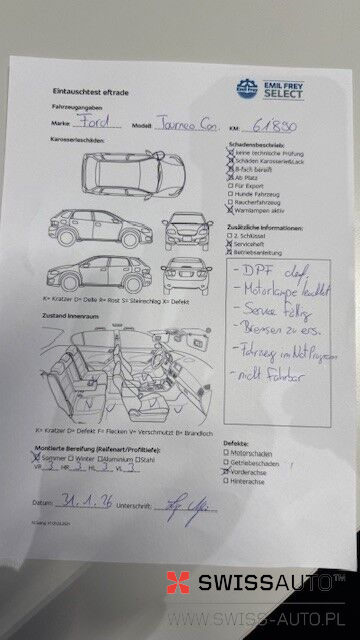 EMIL FREY
SELECT
Eintauschtest eftrade
Fahrzeugangaben
Marke: Ford Modell: Tourneo Con. KM: 61890
Karosserieschäden:
K= Kratzer D= Delle R= Rost S= Steinschlag X= Defekt
Zustand Innenraum
K= Kratzer D= Defekt F= Flecken V= Verschmutzt B= Brandloch
Montierte Bereifung (Reifenart/Profiltiefe):
Sommer Winter Aluminium Stahl
VR 3 HR 3 HL 3 VL 3
Datum: 31.1.26 Unterschrift:
Schadensbeschrieb:
keine technische Prüfung
Schäden Karosserie&Lack
8-fach bereift
Ab Platz
Für Export
Hunde Fahrzeug
Raucherfahrzeug
Warnlampen aktiv
Zusätzliche Informationen:
2. Schlüssel
Serviceheft
Betriebsanleitung
- DPF def,
- Motorlampe leuchtet
- Service fällig
- Bremsen zu ers.
- Fahrzeug im Not Programm
- nicht Fahrbar
Defekte:
Motorschaden
Getriebeschaden
Vorderachse
Hinterachse
SWISSAUTO™
WWW.SWISS-AUTO.PL